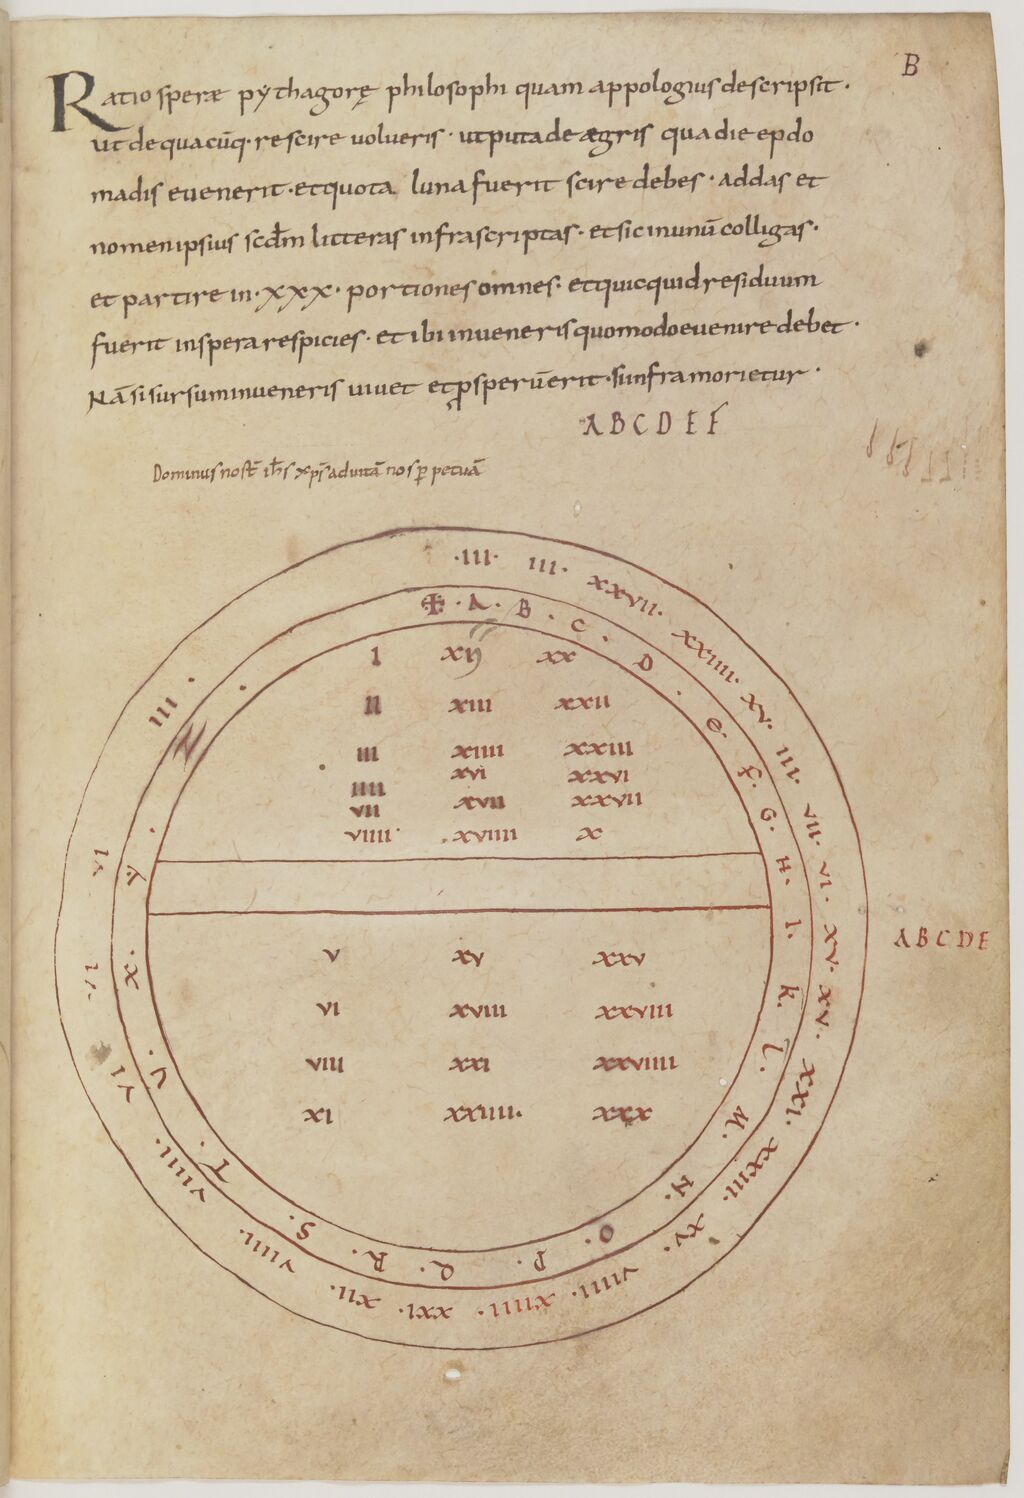 B
Ratio speræ pythagorę philosophi quam appologius descripsit.
Ut de quacūq· re scire volveris· ut puta de ægris qua die epdo
madis evenerit· et quota luna fuerit scire debes· addas et
nomen ipsius scdm litteras infra scriptas· et sic in unū colligas·
et partire in· xxx· portiones omnes· et quicquid residuum
fuerit in spera respicies· et ibi inveneris quomodo evenire debet·
Nā si sursum inveneris vivet et psperū erit· si infra morietur·
A B C D E F
Dominus nost ihs xps ad vitā nos p petuā
·III· III· XXVII· XXIIII· XV· III· VII· VI· XV· XV· XXI· XXIII· XV· VIIII· XIIII· XXI· XII· VIIII· VIIII· VI VI VI III·
✠ · A · B · C · D · E · F · G · H · I · K · L · M · N · O · P · Q · R · S · T · V · X · Y · Z ·
I XII XX
II XIII XXII
III XIIII XXIII
IIII XVI XXVI
VII XVII XXVII
VIIII· XVIIII X
V XV XXV
VI XVIII XXVIII
VIII XXI XXVIIII
XI XXIIII· XXX
A B C D E